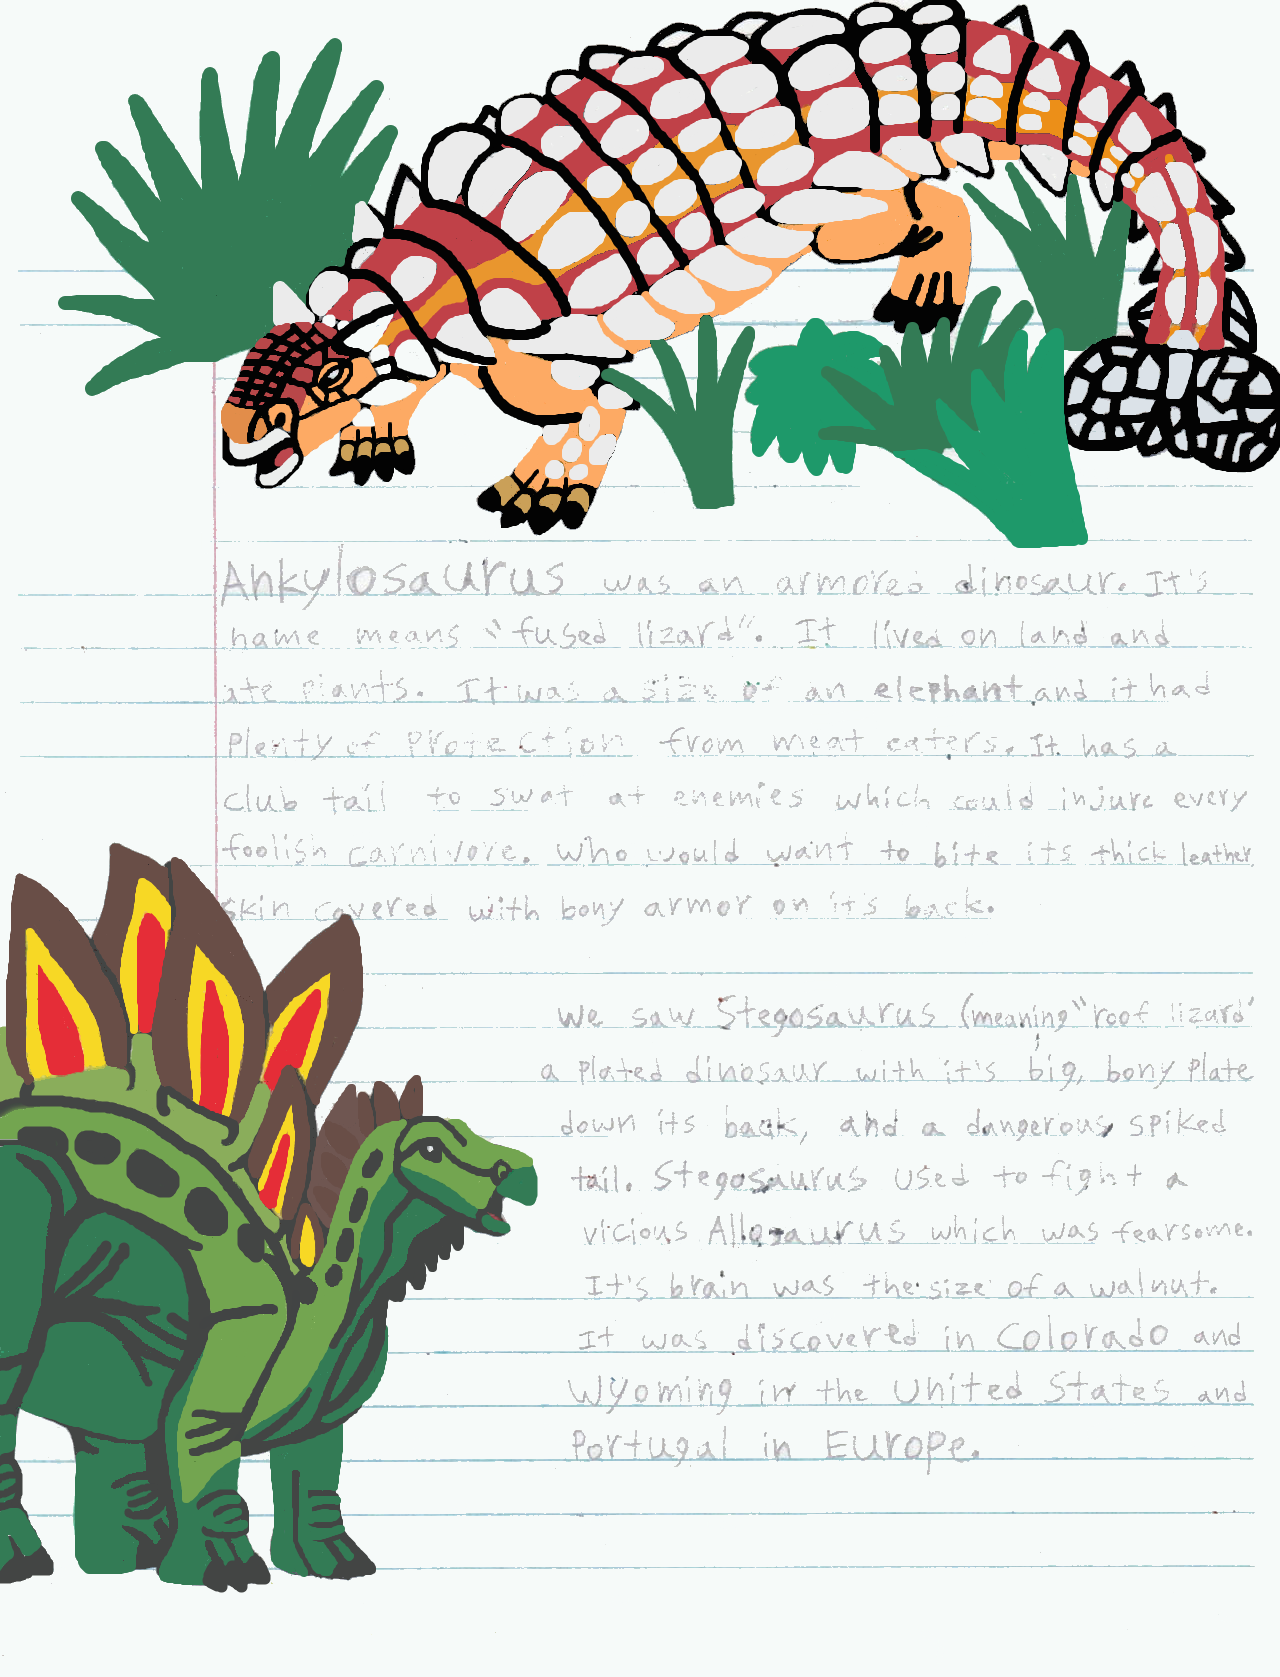 Ankylosaurus was an armored dinosaur. It's
name means "fused lizard". It lived on land and
ate plants. It was a size of an elephant and it had
Plenty of Protection from meat eaters. It has a
club tail to swat at enemies which could injure every
foolish carnivore. Who would want to bite its thick leather
skin covered with bony armor on it's back.
We saw Stegosaurus (meaning "roof lizard"
a plated dinosaur with it's big, bony plate
down its back, and a dangerous, spiked
tail. Stegosaurus used to fight a
vicious Allosaurus which was fearsome.
It's brain was the size of a walnut.
It was discovered in Colorado and
Wyoming in the United States and
Portugal in Europe.